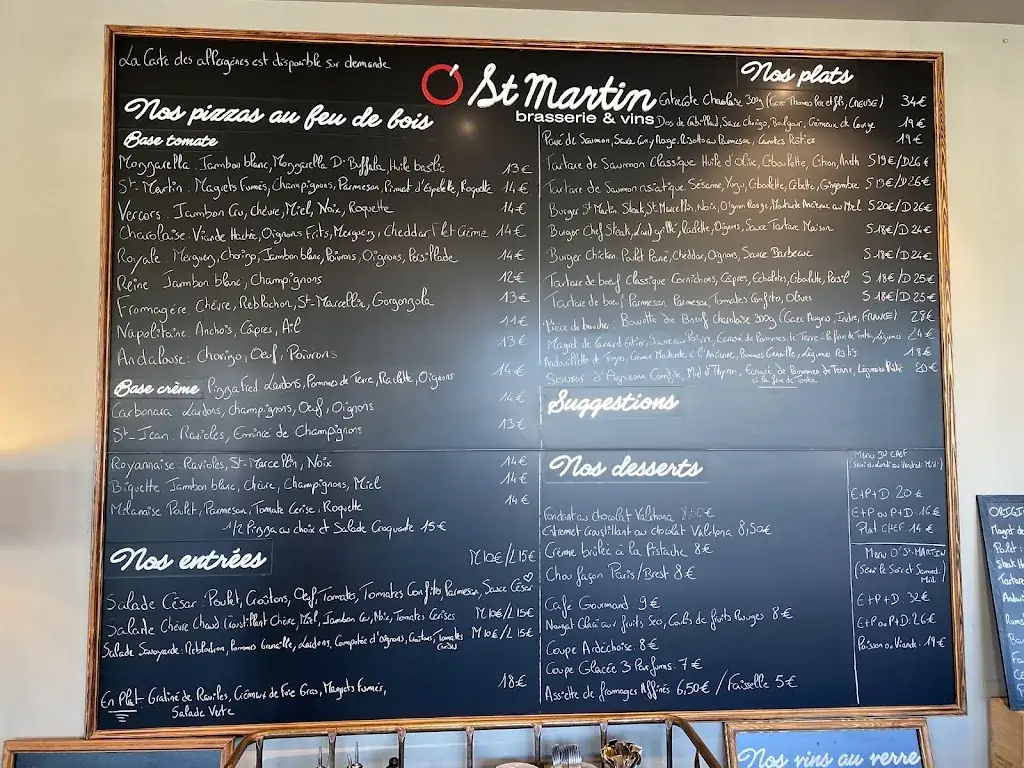 La Carte des allergènes est disponible sur demande
Ó St Martin
brasserie & vins
Nos pizzas au feu de bois
Base tomate
Mozzarella : Jambon blanc, Mozzarella Di Buffala, Huile basilic 13€
St-Martin : Magrets Fumés, Champignons, Parmesan, Piment d'Espelette, Roquette 14€
Vercors : Jambon Cru, Chèvre, Miel, Noix, Roquette 14€
Charolaise : Viande Hachée, Oignons Frits, Merguez, Cheddar Filet Crème 14€
Royale : Merguez, Chorizo, Jambon blanc, Poivrons, Oignons, Persillade 14€
Reine : Jambon blanc, Champignons 12€
Fromagère : Chèvre, Reblochon, St-Marcellin, Gorgonzola 13€
Napolitaine : Anchois, Câpres, Ail 11€
Andalouse : Chorizo, Oeuf, Poivrons 13€
Base crème
Pizza Fred Lardons, Pommes de Terre, Raclette, Oignons 14€
Carbonara Lardons, Champignons, Oeuf, Oignons 14€
St-Jean : Ravioles, Emincé de Champignons 13€
Royannaise : Ravioles, St-Marcellin, Noix 14€
Biquette : Jambon blanc, Chèvre, Champignons, Miel 14€
Milanaise Poulet, Parmesan, Tomate Cerise, Roquette 14€
1/2 Pizza au choix et Salade Croquade 15€
Nos entrées
M 10€/L 15€
Salade César : Poulet, Croûtons, Oeuf, Tomates, Tomates Confites, Parmesan, Sauce César
Salade Chèvre Chaud Croustillant Chèvre, Miel, Jambon Cru, Noix, Tomates Cerises M 10€/L 15€
Salade Savoyarde : Reblochon, Pommes Grenaille, Lardons, Compotée d'Oignons, Tomates Cerises M 10€/L 15€
En Plat : Gratiné de Ravioles, Crémeux de Foie Gras, Magrets Fumés, 18€
Salade Verte
Nos plats
Entrecôte Charolaise 300g (Gaec Thomas Père et fils, CREUSE) 34€
Dos de Cabillaud, Sauce Chorizo, Boulgour, Crémeux de Courge 19€
Pavé de Saumon, Sauce Curry Rouge, Risotto au Parmesan, Carottes Rôties 19€
Tartare de Saumon Classique Huile d'Olive, Ciboulette, Citron, Aneth S 19€/D 26€
Tartare de Saumon asiatique Sésame, Yuzu, Ciboulette, Cébette, Gingembre S 19€/D 26€
Burger St Martin Steak, St Marcellin, Noix, Oignon Rouge, Moutarde Ancienne au Miel S 20€/D 26€
Burger Chef Steak, Lard grillé, Raclette, Oignons, Sauce Tartare Maison S 18€/D 24€
Burger Chicken Poulet Pané, Cheddar, Oignons, Sauce Barbecue S 18€/D 24€
Tartare de boeuf Classique Cornichons, Câpres, Echalotes, Ciboulette, Persil S 18€/D 25€
Tartare de boeuf Parmesan Parmesan, Tomates Confites, Olives S 18€/D 25€
Pièce du boucher : Bavette de Boeuf Charolaise 300g (Gaec Augros, Indre, FRANCE) 28€
Magret de Canard Entier, Sauce au Poivre, Ecrasé de Pommes de Terre à la fève de Tonka, Légumes 24€
Andouillette de Troyes, Crème Moutarde à l'Ancienne, Pommes Grenaille, Légumes Rôtis 18€
Souris d'Agneau Confite, Miel et Thym, Ecrasé de Pommes de Terre, Légumes Rôtis 20€
à la fève de Tonka
Suggestions
Nos desserts
Fondant au chocolat Valrhona 8,50€
Entremet Croustillant au chocolat Valrhona 8,50€
Crème brûlée à la Pistache 8€
Chou façon Paris/Brest 8€
Café Gourmand 9€
Nougat Glacé aux fruits Secs, Coulis de fruits Rouges 8€
Coupe Ardéchoise 8€
Coupe Glacée 3 Parfums : 7€
Assiette de fromages Affinés 6,50€ / Faisselle 5€
Menu DU CHEF
(Servi du Lundi au Vendredi Midi)
E+P+D 20€
E+P ou P+D : 16€
Plat CHEF 14€
Menu O'St-MARTIN
(Servi le Soir et Samedi Midi)
E+P+D : 32€
E+P ou P+D : 26€
Poisson ou Viande : 19€
Nos vins au verre